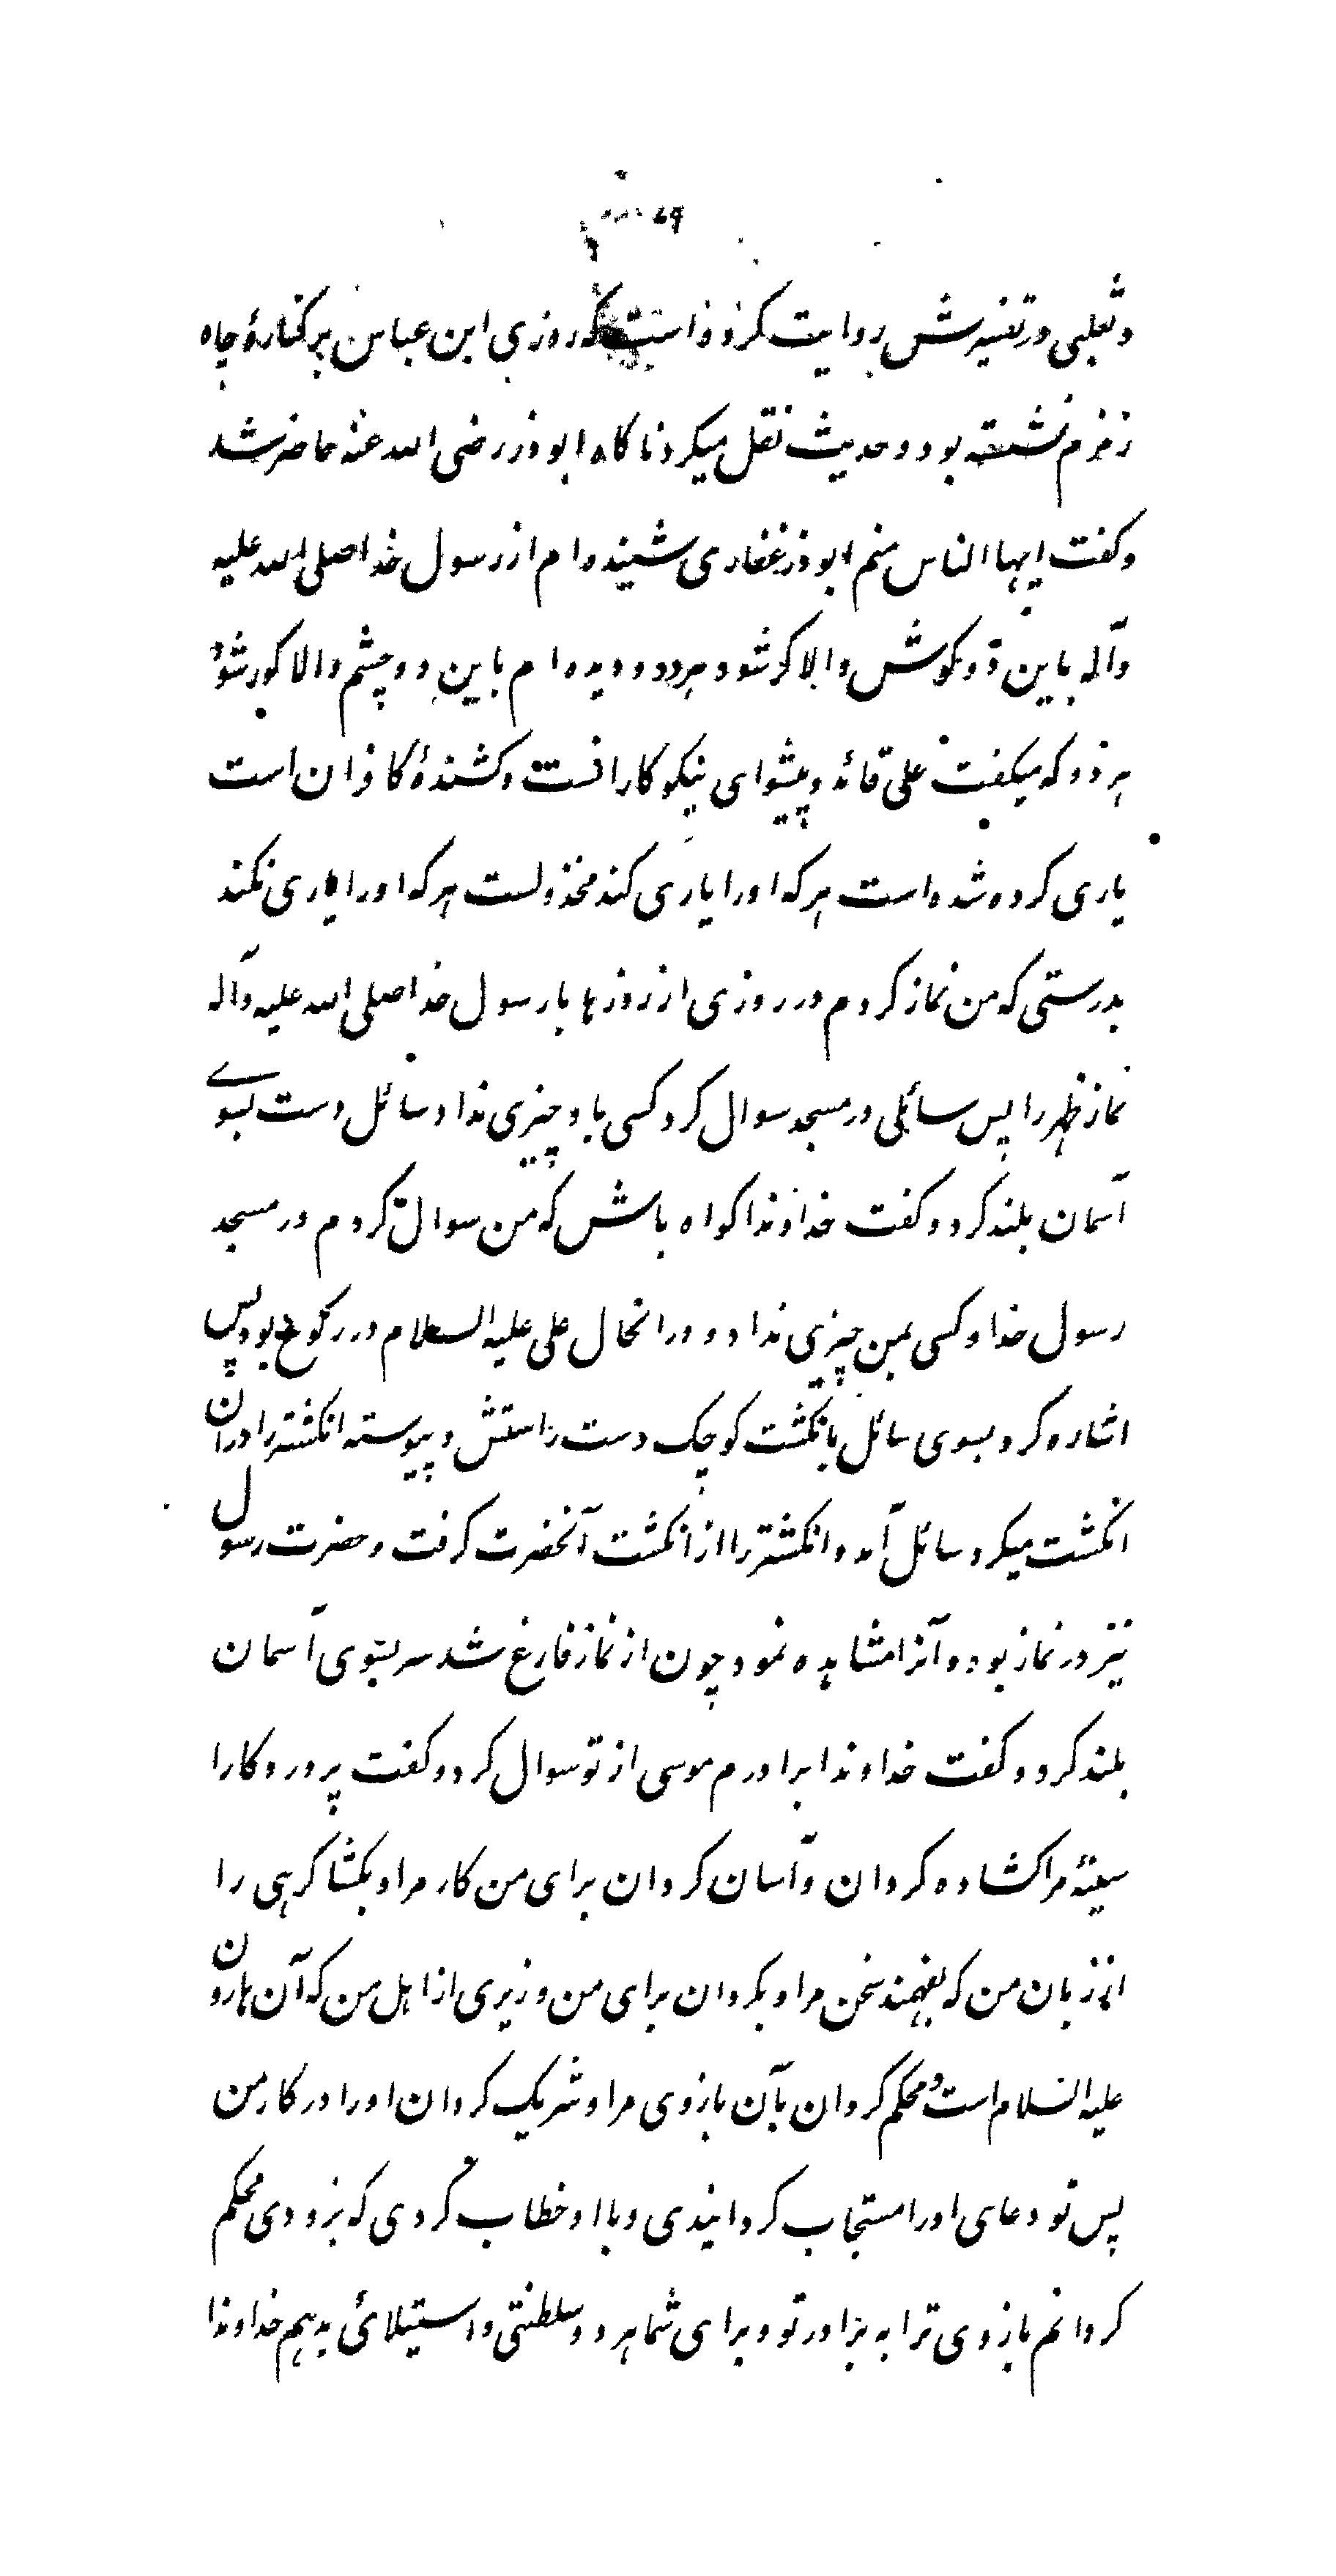 ۶۹
وثعلبی در تفسیرش روایت کرده است که روزی ابن عباس بر کنارهٔ چاه
زمزم نشسته بود و حدیث نقل میکرد ناکاه ابوذر رضی الله عنه حاضر شد
و کفت ایها الناس منم ابوذر غفاری شنیده ام از رسول خدا صلی الله علیه
وآله باین دو کوش والا کر شود هردو و دیده ام باین دو چشم والا کور شود
هر دو که میکفت علی قائد و پیشوای نیکو کارانست و کشندهٔ کافران است
یاری کرده شده است هر که اورا یاری کند مخذولست هر که اورا یاری نکند
بدرستی که من نماز کردم در روزی از روزها با رسول خدا صلی الله علیه وآله
نماز ظهر را پس سائلی در مسجد سوال کرد کسی باو چیزی نداد سائل دست بسوے
آسمان بلند کرد و کفت خداوندا کواه باش که من سوال کردم در مسجد
رسول خدا و کسی بمن چیزی نداد و درانحال علی علیه السلام در رکوع بود پس
اشاره کرد بسوی سائل بانکشت کوچک دست راستش و پیوسته انکشتر را دران
انکشت میکرد سائل آمد و انکشتر را از انکشت آنحضرت کرفت و حضرت رسول
نیز در نماز بود و آنرا مشاهده نمود چون از نماز فارغ شد سر بسوی آسمان
بلند کرد و کفت خداوندا برادرم موسی از تو سوال کرد و کفت پروردکارا
سینهٔ مرا کشاده کردان و آسان کردان برای من کار مرا و بکشا کرهی را
از زبان من که بفهمند سخن مرا و بکردان برای من وزیری از اهل من که آن هارون
علیه السلام است و محکم کردان بآن بازوی مرا و شریک کردان اورا در کار من
پس تو دعای اورا مستجاب کردانیدی و با او خطاب کردی که بزودی محکم
کردانم بازوی ترا به برادر تو و برای شما هر دو سلطنتی و استیلائی بدهم خداوندا